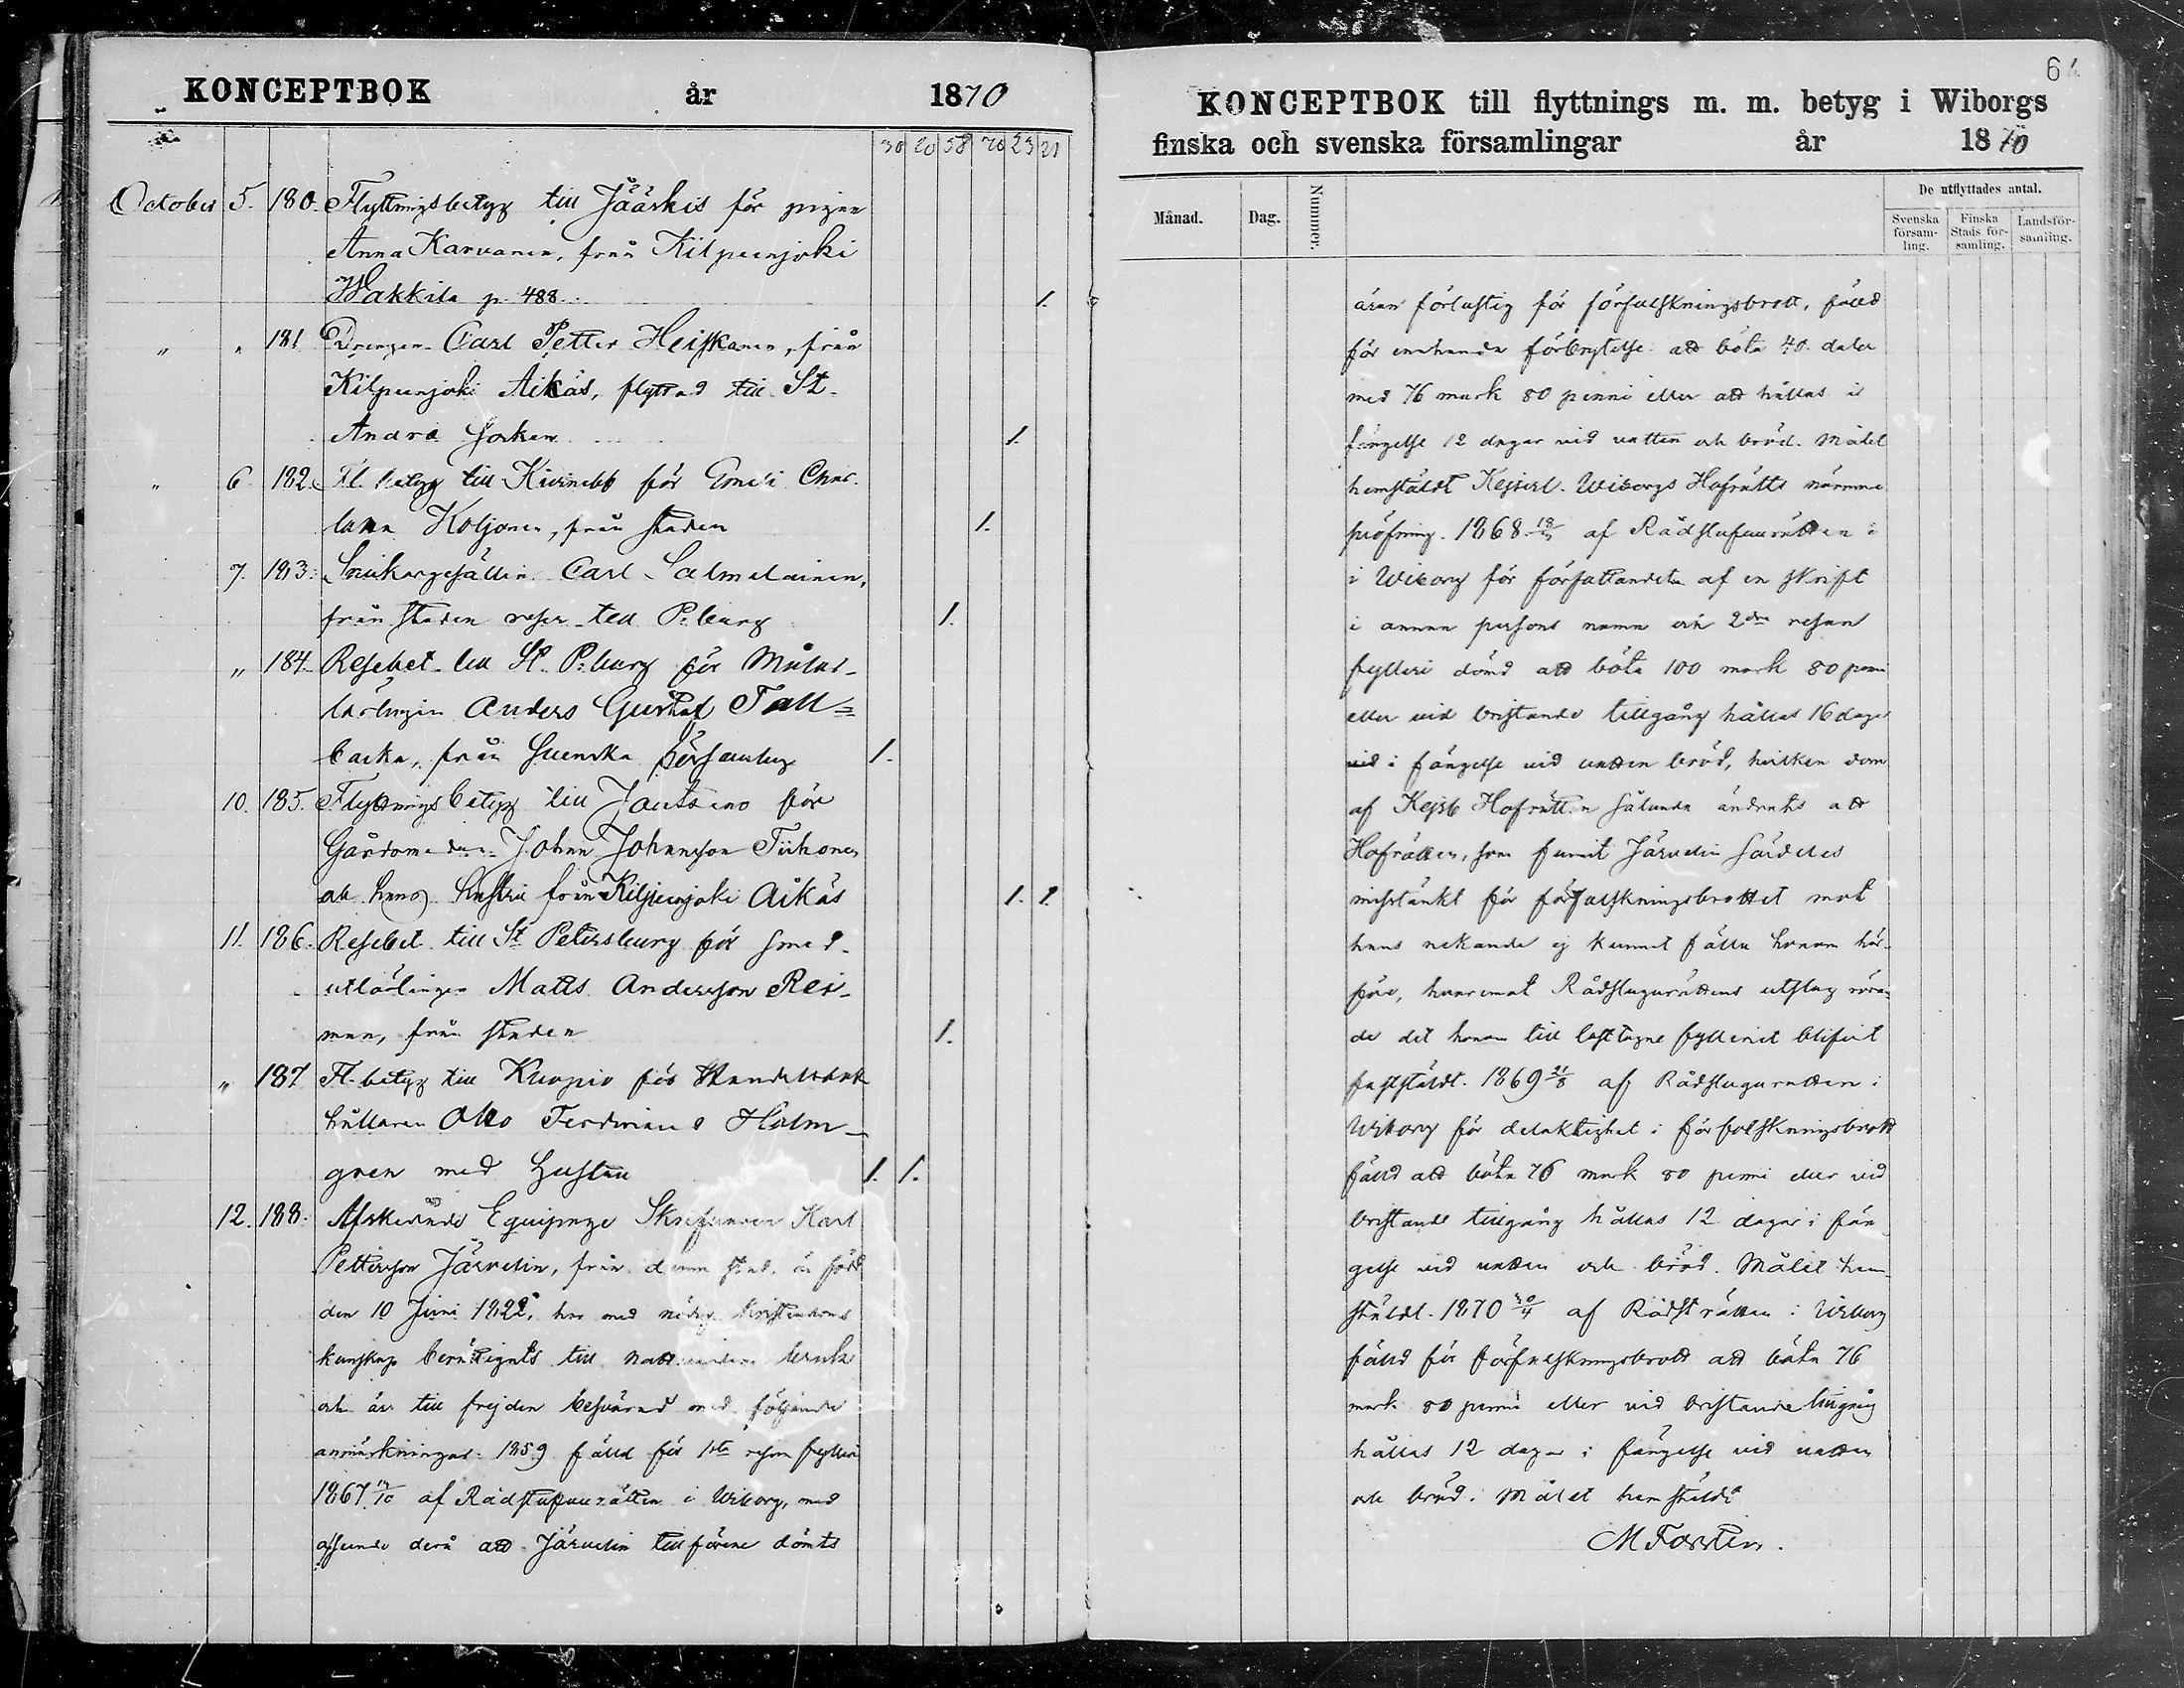 KONCEPTBOK år 1870
30 20 58 70 23 21
October 5. 180. Flyttningsbetyg till Jääskis för pigan
Anna Karvanen, från Kilpeenjoki
Wakkila p. 488. 1.
" " 181 Drengen Carl Petter Heiskanen, från
Kilpeenjoki Aikäs, flyttad till St.
Andræ Socken 1.
" 6. 182. Fl. betyg till Kivinebb för
Koljonen, från staden 1.
7. 183. Snickargesällen Carl Salmelainen,
från staden reser till P:burg 1.
" 184. Resebet. till St. P:burg för Målar-
lärlingen Anders Gustaf Tall=
backa, från Svenska församling 1.
10. 185. Flyttningsbetyg till Jautseno för
Johan Johansson Tiihonen
och hans hustru från Kilpeenjoki Aikäs 1. 1.
11. 186. Resebet. till St Petersburg för smed-
utlärlingen Matts Andersson Rei-
man, från staden 1.
" 187 Fl. betyg till Kuopio för Handelsbok
hållaren Otto Ferdinand Holm-
gren med hustru 1. 1.
12. 188. Afskedade Equipage Skrifvaren Karl
Pettersson Järvelin, från denna stad, är född
den 10 Juni 1822, har med nödig kristendoms
kunskap berättigats till nattvardens bruk
och är till frejden besvärad med följande
anmärkningar: 1859 fälld för 1sta resan fylleri
1867 /10 af Rådstufvurätten i Wiborg, med
afseende derå att Järvelin tillförene dömts
64
KONCEPTBOK till flyttnings m. m. betyg i Wiborgs
finska och svenska församlingar år 1870
Månad. Dag. Nummer. De utflyttades antal.
Svenska församling. Finska Stads församling. Landsförsamling.
äran förlustig för förfalskningsbrott, fälld
för enahanda förbrytelse att böta 40 daler
med 76 mark 80 penni eller att hållas i
fängelse 12 dagar vid vatten och bröd. Målet
hemställdt Kejserl. Wiborgs Hofrätts närmare
pröfning. 1868 af Rådstufvurätten i
i Wiborg för författandet af en skrift
i annan persons namn och 2dra resan
fylleri dömd att böta 100 mark 80 penni
eller vid bristande tillgång hållas 16 dagar
vid i fängelse vid vatten bröd, hvilken dom
af Kejs. Hofrätten sålunda ändrats att
Hofrätten, som funnit Järvelin särdeles
misstänkt för förfalskningsbrottet mot
hans nekande ej kunnat fälla honom här-
före, hvaremot Rådstugurättens utslag röran-
de det honom till last lagne fylleriet blifvit
fastställdt. 1869 21/8 af Rådstugurätten i
Wiborg för delaktighet i förfalskningsbrott
fälld att böta 76 mark 80 penni eller vid
bristande tillgång hållas 12 dagar i fän-
gelse vid vatten och bröd. Målet hem-
ställdt. 1870 30/4 af Rådsträtten i Wiborg
fälld för förfalskningsbrott att böta 76
mark 80 penni eller vid bristande tillgång
hållas 12 dagar i fängelse vid vatten
och bröd. Målet hemställdt
M Forstén.